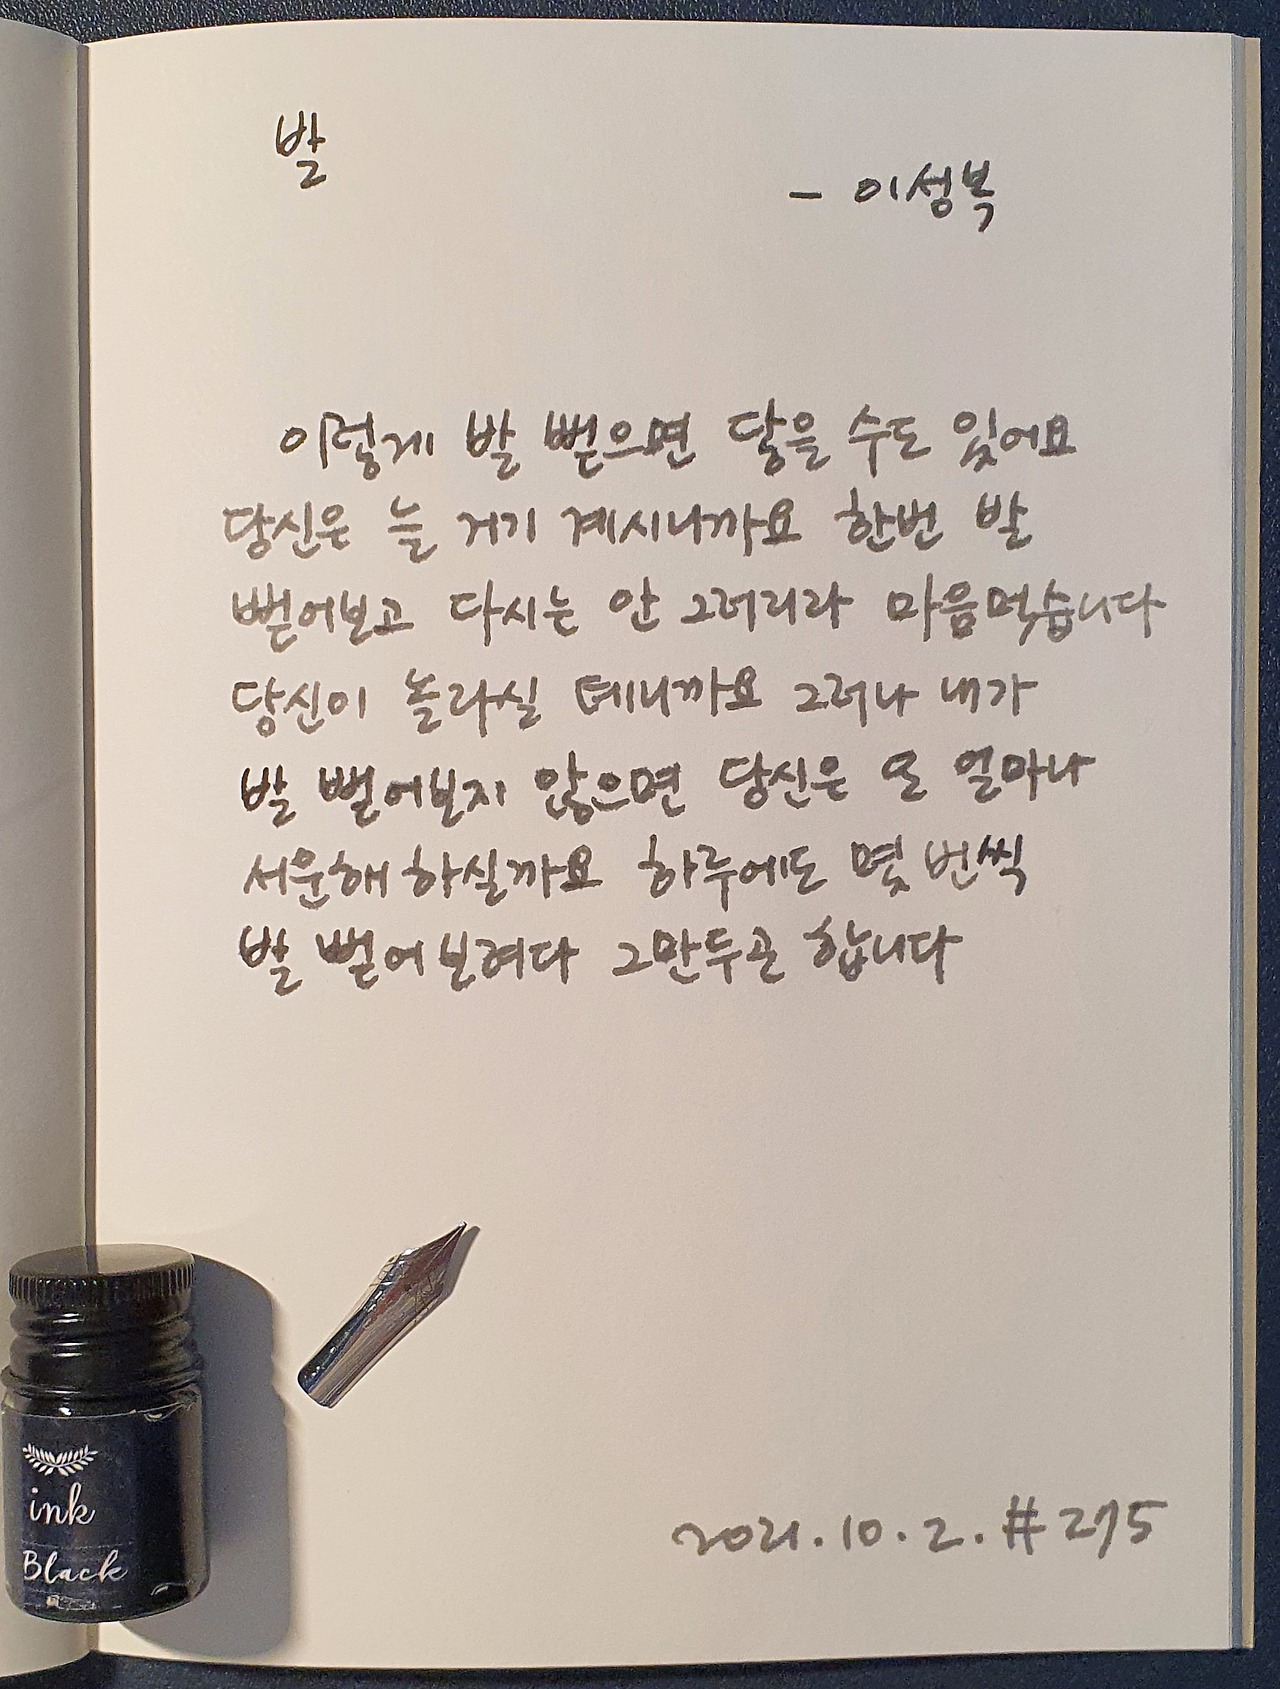 발
- 이성복
이렇게 발 뻗으면 닿을 수도 있어요
당신은 늘 거기 계시니까요 한번 발
뻗어보고 다시는 안 그러리라 마음먹습니다
당신이 놀라실 테니까요 그러나 내가
발 뻗어보지 않으면 당신은 또 얼마나
서운해 하실까요 하루에도 몇 번씩
발 뻗어 보려다 그만두곤 합니다
ink
Black
2021.10.2. #275